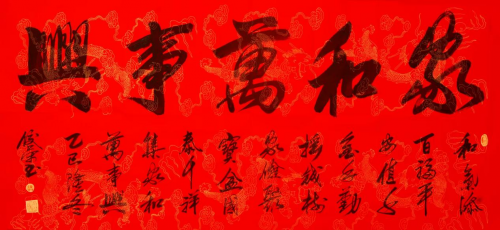 家和萬事興
和氣添
百福平
安值千
金人勤
搖錢樹
家儉聚
寶盆國
泰千祥
集家和
萬事興
乙巳隆冬